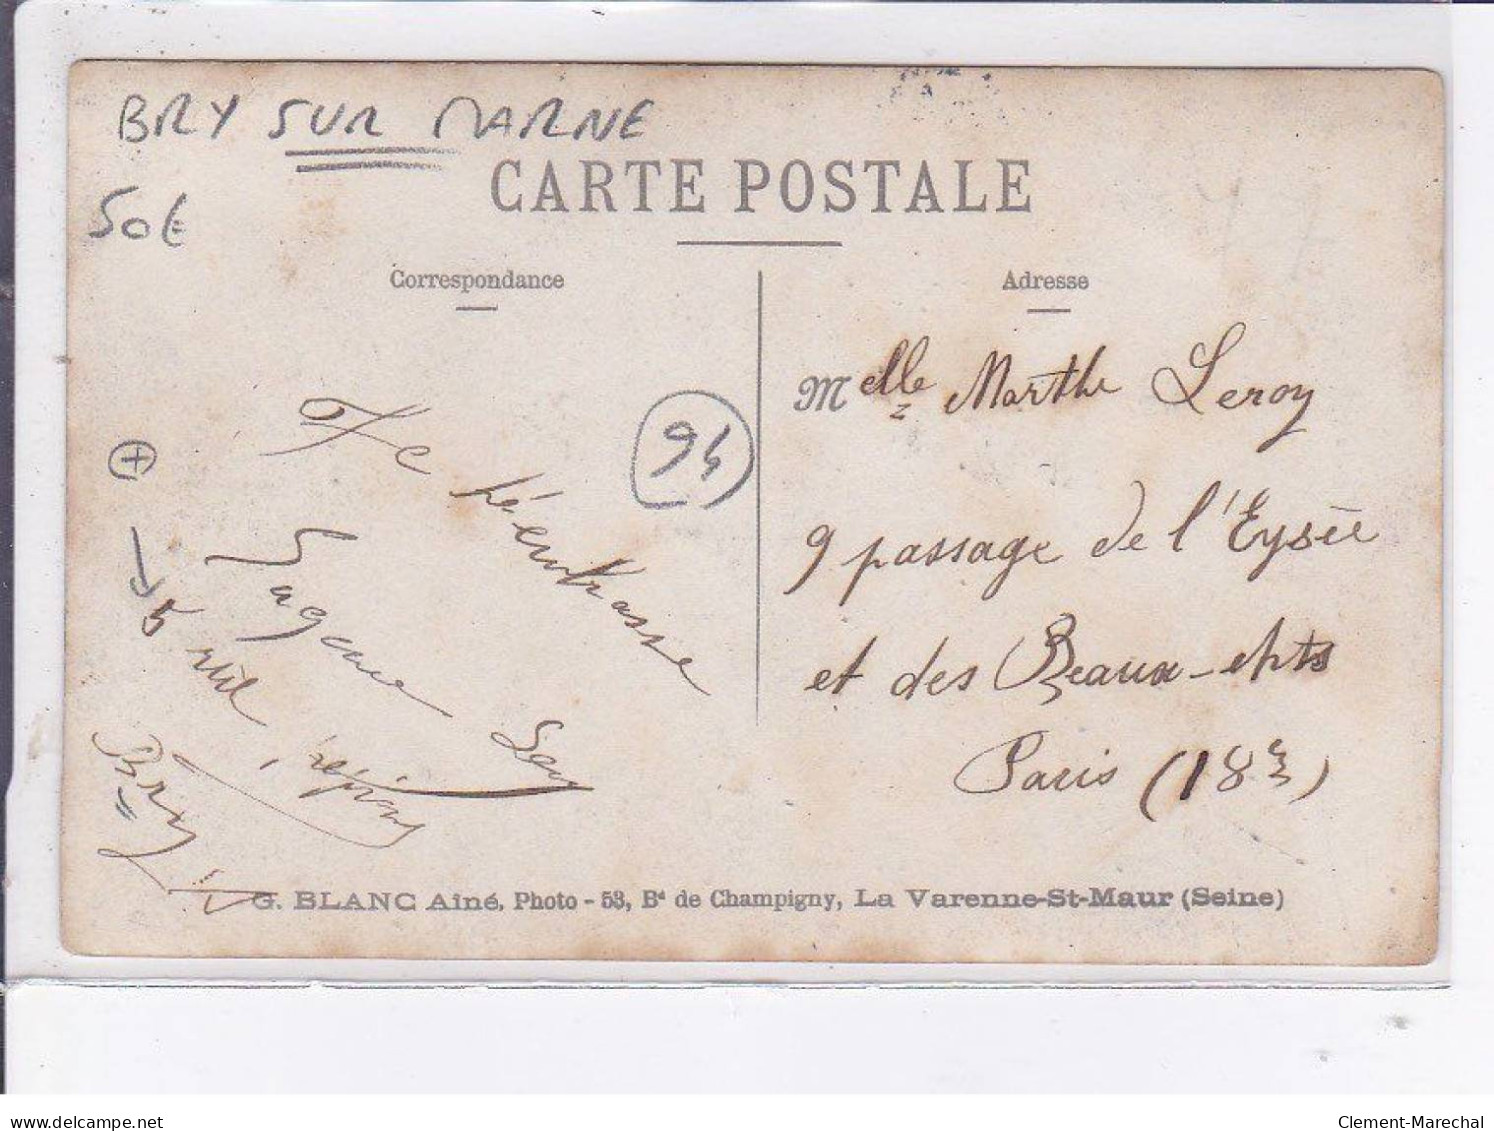 BRY SUR MARNE
50€
CARTE POSTALE
Correspondance
Adresse
Melle Marthe Leroy
9 passage de l'Eysée
et des Beaux-arts
Paris (18e)
94
Je t'embrasse
5 rue
Bry
G. BLANC Aîné, Photo - 53, Bd de Champigny, La Varenne-St-Maur (Seine)
www.delcampe.net
Clement-Marechal